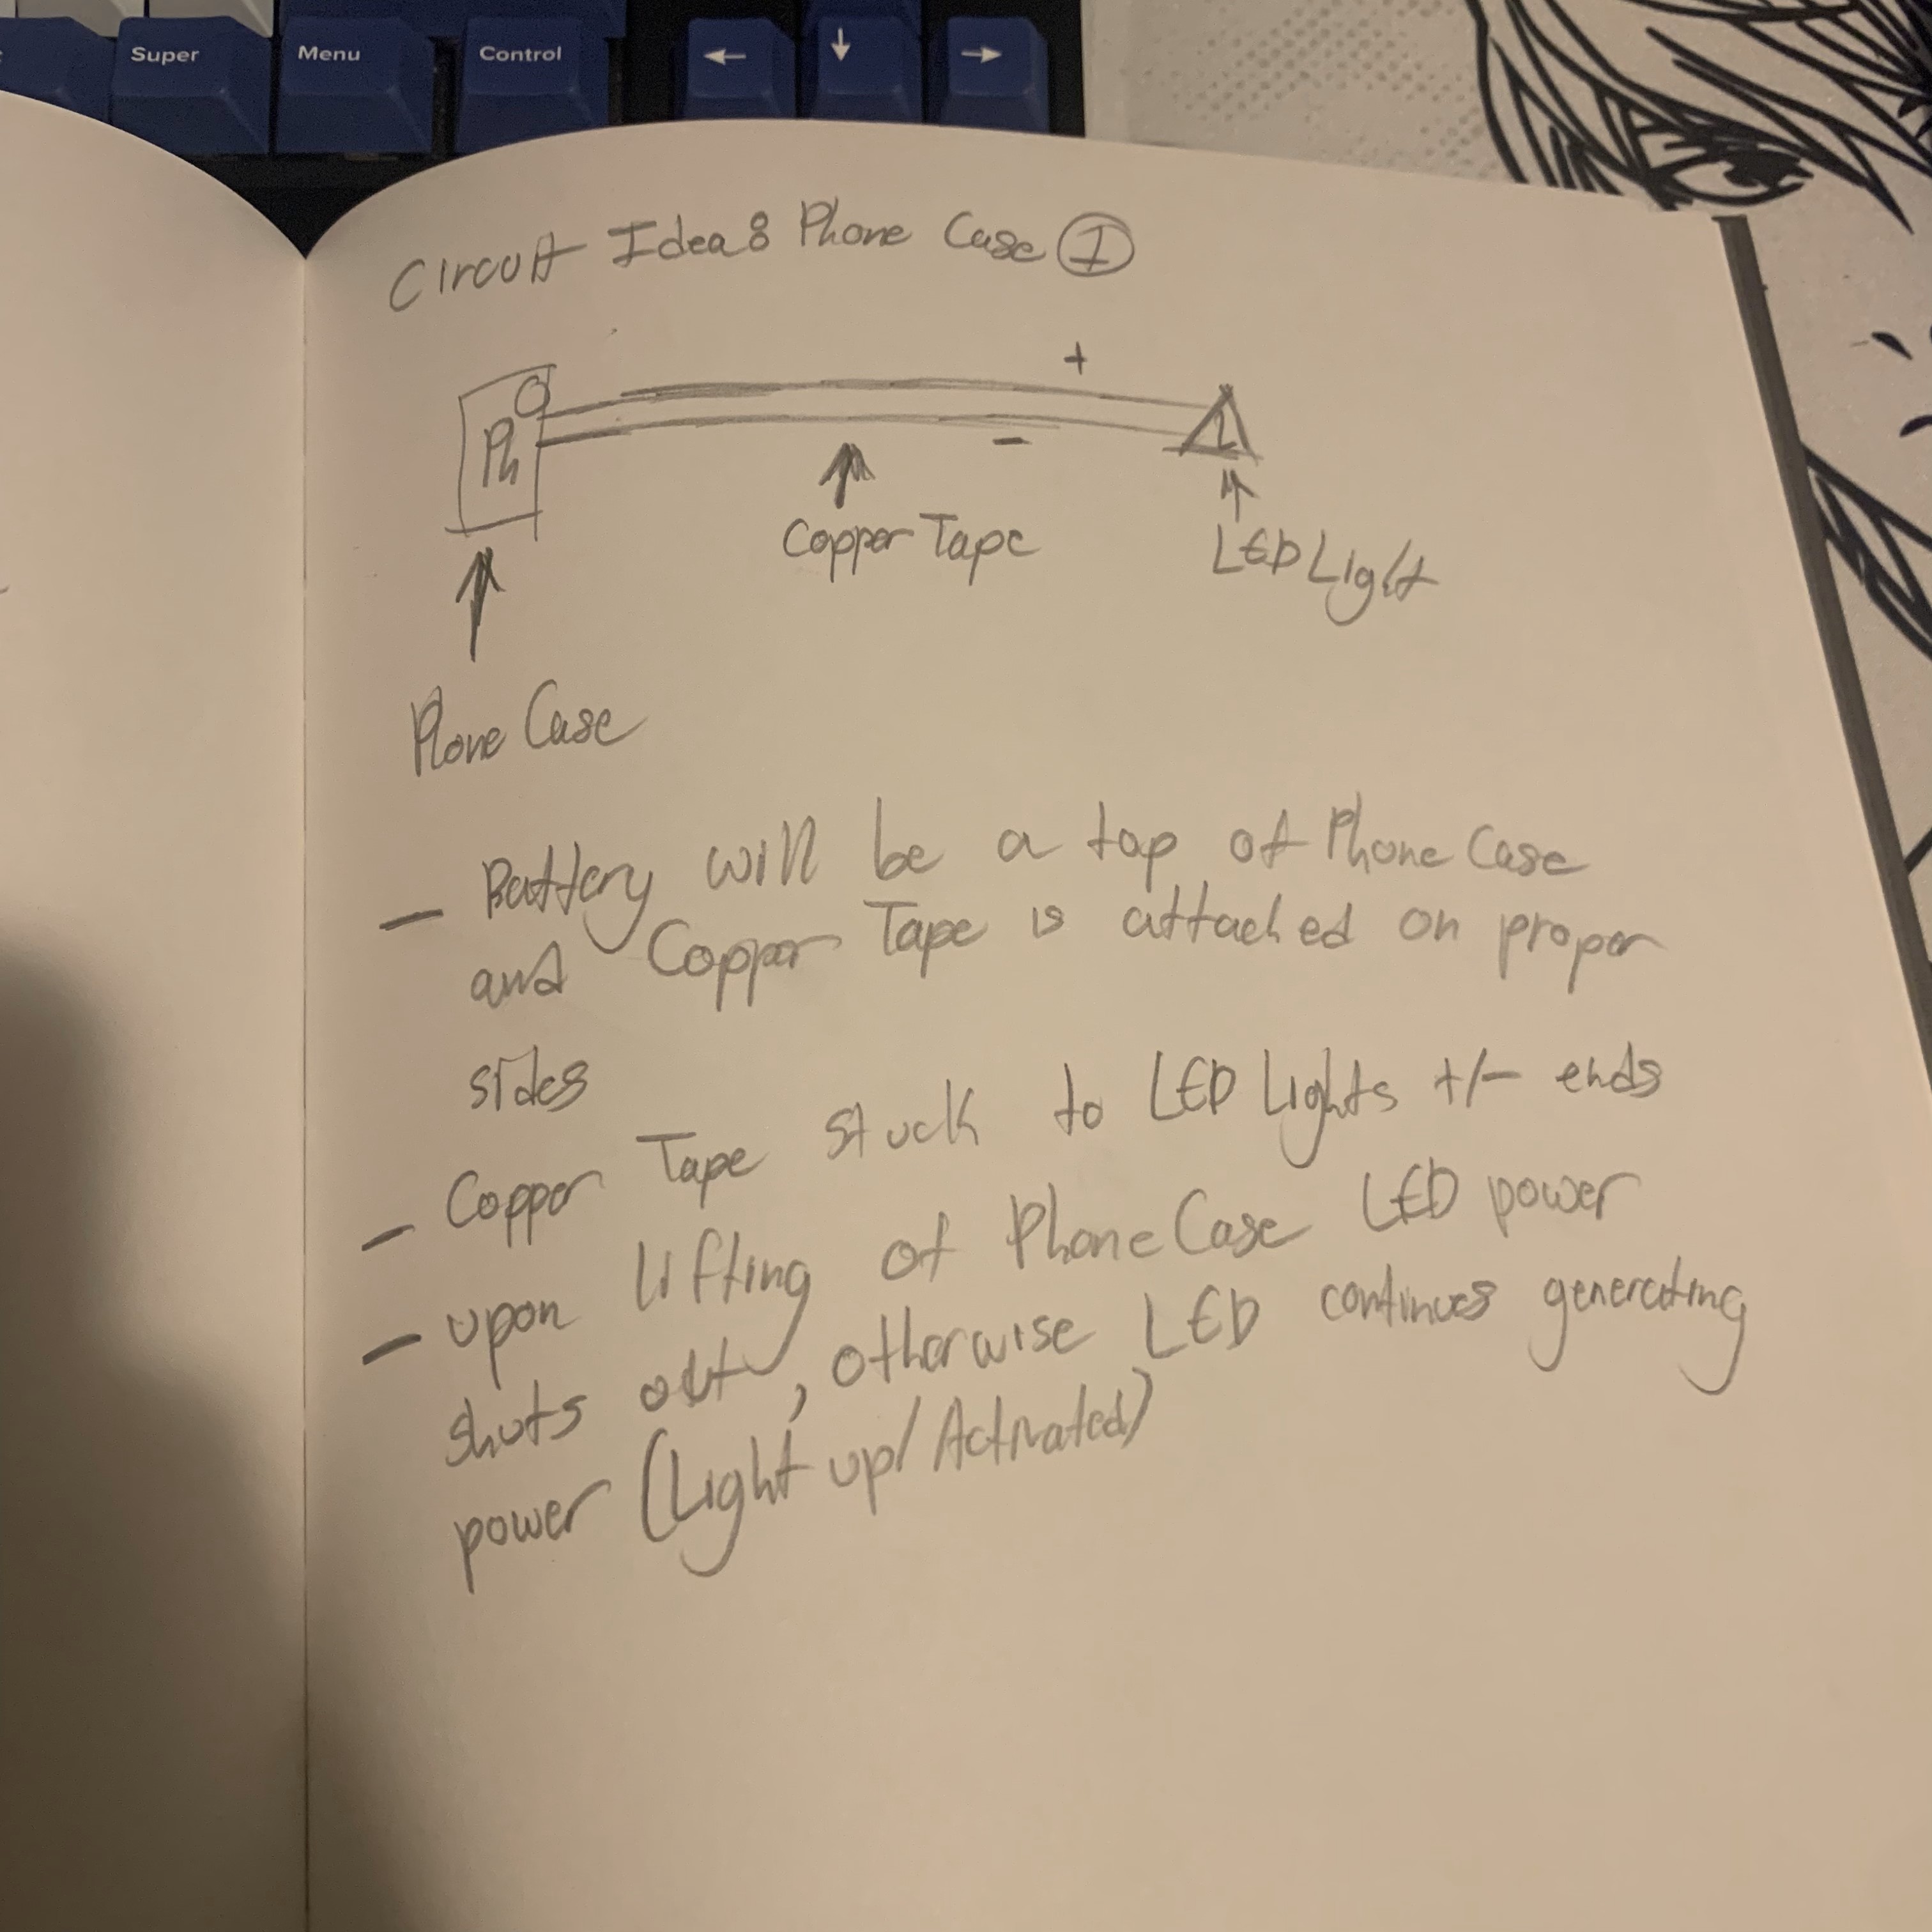 Super Menu Control ← ↓ →
Circuit Idea: Phone Case ①
+
Ph
L
−
Copper Tape
LED Light
Phone Case
– Battery will be a top of Phone Case
and Copper Tape is attached on proper
sides
– Copper Tape stuck to LED Lights +/- ends
– upon lifting of Phone Case LED power
shuts out, otherwise LED continues generating
power (Light up/Activated)